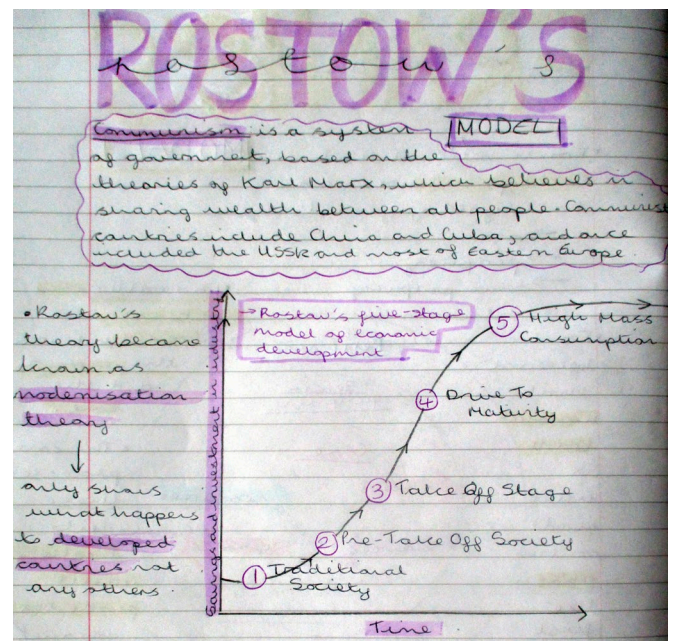 ROSTOW'S
rostow's
MODEL
Communism is a system
of government, based on the
theories of Karl Marx, which believes in
sharing wealth between all people. Communist
countries include China and Cuba, and once
included the USSR and most of Eastern Europe.
• Rostow's
theory became
known as
modenisation
theory
↓
only shows
what happens
to developed
countries not
any others.
Savings and investment in industry
→ Rostow's five-stage
model of economic
development
5 High Mass
Consumption
4 Drive To
Maturity
3 Take Off Stage
2 Pre-Take Off Society
1 Traditional
Society
Time